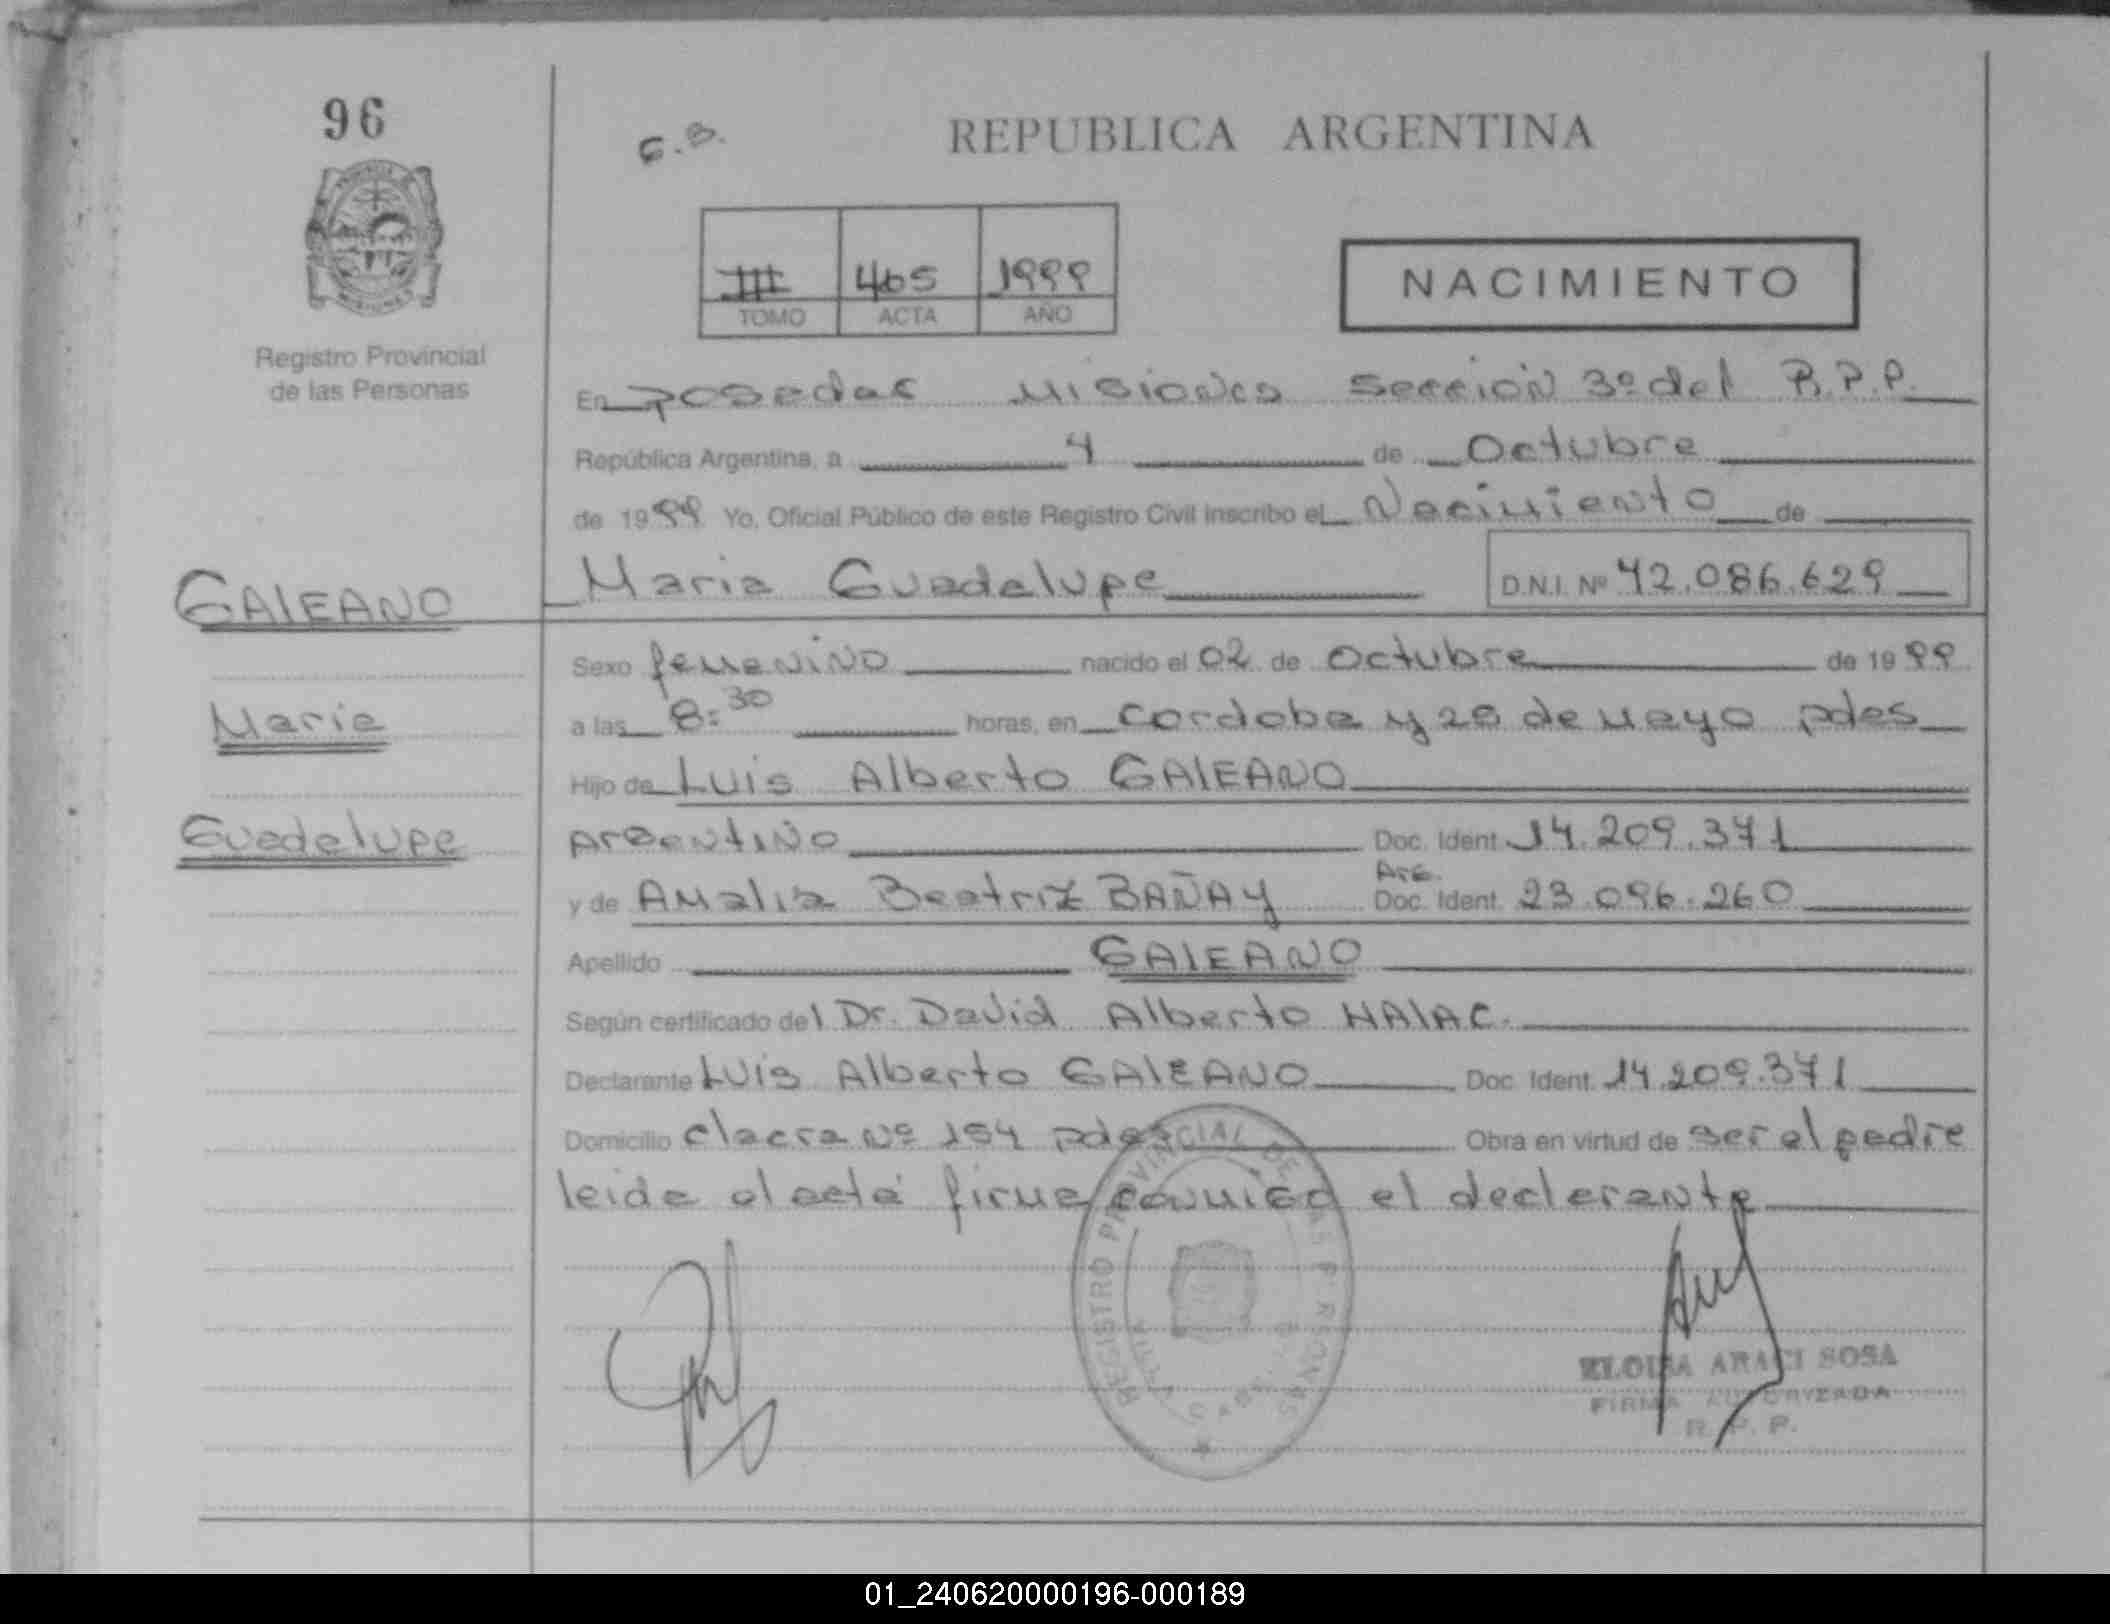 96
G.B.
REPUBLICA ARGENTINA
III 465 1999
TOMO ACTA AÑO
NACIMIENTO
Registro Provincial
de las Personas
En posadas Misiones sección 3º del R.P.P.
República Argentina, a 4 de Octubre
de 1999 Yo, Oficial Público de este Registro Civil inscribo el Nacimiento de
GALEANO
Maria Guadalupe D.N.I. Nº 42.086.629
Sexo femenino nacido el 02 de Octubre de 1999
Maria
a las 8:30 horas, en Cordoba y 25 de mayo pdas
Hijo de Luis Alberto GALEANO
Guadalupe
Argentino Doc. Ident. 14.209.371
Arg.
y de Amalia Beatriz BAÑAY Doc. Ident. 23.096.260
Apellido GALEANO
Según certificado del Dr. David Alberto HALAC.
Declarante Luis Alberto GALEANO Doc. Ident. 14.209.371
Domicilio chacra nº 154 pdas Obra en virtud de ser el padre
leida el acta firma conmigo el declarante
REGISTRO PROVINCIAL DE LAS PERSONAS
ELOISA ARACI SOSA
FIRMA AUTORIZADA
R. P. P.
01_240620000196-000189